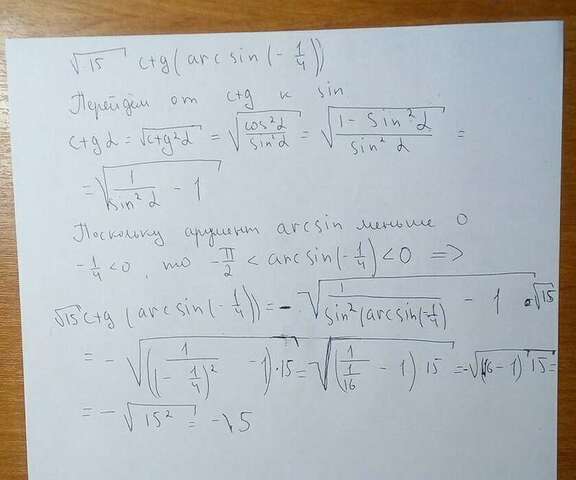 √15 ctg(arcsin(-1/4))
Перейдём от ctg к sin
ctg α = √(ctg²α) = √(cos²α/sin²α) = √((1 - sin²α)/sin²α) =
= √(1/sin²α - 1)
Поскольку аргумент arcsin меньше 0
-1/4 < 0, то -π/2 < arcsin(-1/4) < 0 =>
√15 ctg(arcsin(-1/4)) = -√(1/sin²(arcsin(-1/4)) - 1) · √15
= -√((1/(1-1/4)² - 1) · 15) = -√((1/(1/16) - 1) 15) = -√((16-1) 15) =
= -√(15²) = -√5